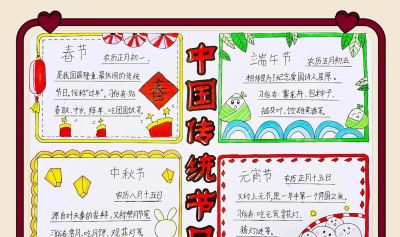 中国传统节日
春节
农历正月初一,
是我国最隆重、最热闹的传统
节日,俗称"过年"。习俗有:贴
春联、守岁、拜年、吃团圆饭等。
春
端午节
农历五月初五
相传是为了纪念爱国诗人屈原。
习俗有:赛龙舟、包粽子、
插艾叶、饮雄黄酒等。
中秋节
农历八月十五日
源自对天象的崇拜,又称
习俗有:赏月、吃月饼、观花灯等
元宵节
农历正月十五日
又称上元节,是一年中第一个月圆之夜。
习俗有:吃元宵、赏花灯、
猜灯谜等。